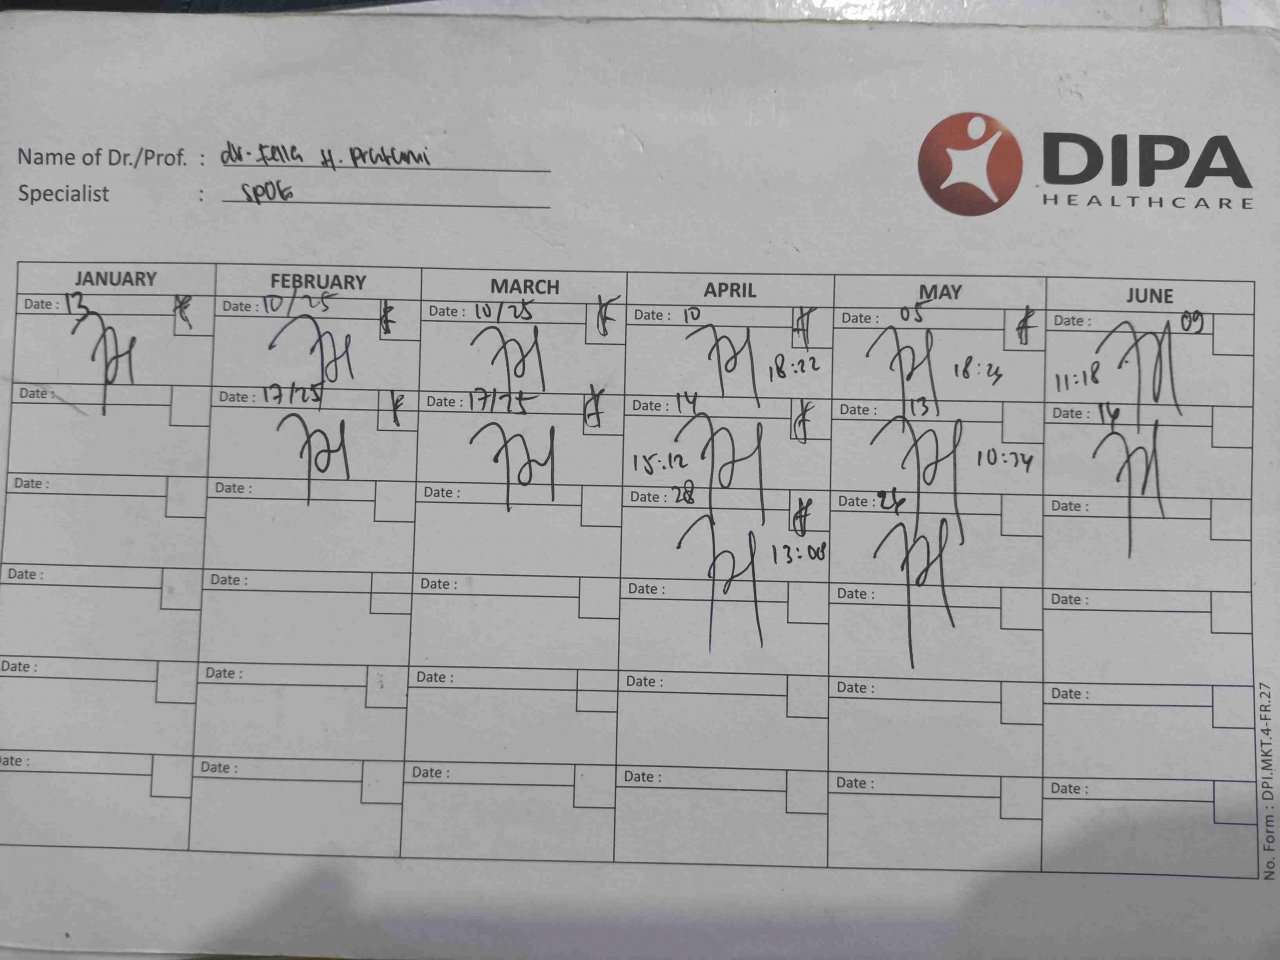 Name of Dr./Prof. : dr. Fella H. Pratami
Specialist : SpOG
DIPA
HEALTHCARE
JANUARY FEBRUARY MARCH APRIL MAY JUNE
Date : 13 Date : 10/25 Date : 10/25 Date : 10 Date : 05 Date : 09
18:22 18:24 11:18
Date : Date : 17/25 Date : 17/25 Date : 14 Date : 13 Date : 14
15:12 10:34
Date : Date : Date : Date : 28 Date : 26 Date :
13:00
Date : Date : Date : Date : Date : Date :
Date : Date : Date : Date : Date : Date :
Date : Date : Date : Date : Date : Date :
No. Form : DPI.MKT.4-FR.27